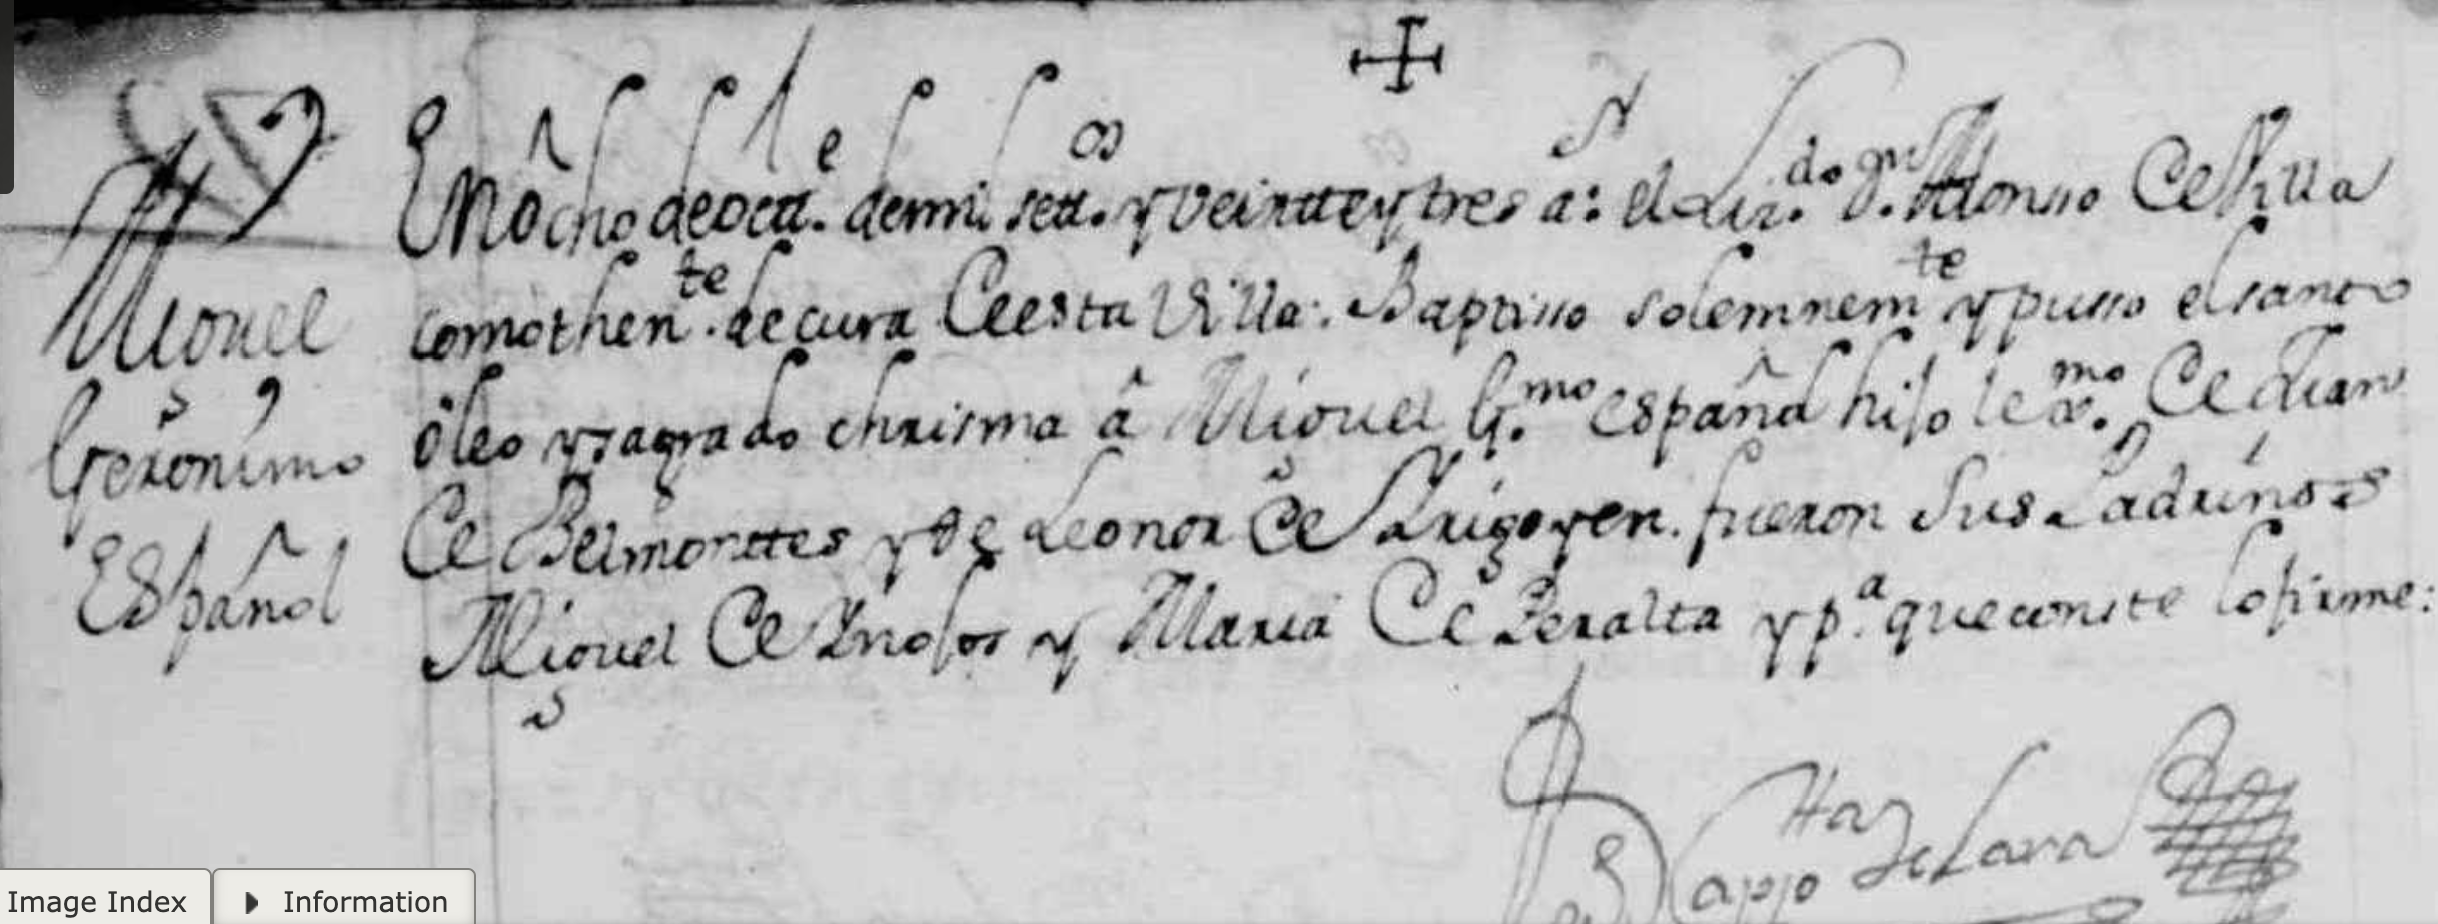 Miguel
Gerónimo
Español
En ôcho de octt.e de mil sett.os y veintte y tres a.s el Liz.do D.n Alonso De
como then.te de cura De esta Villa. Baptisso solemnem.te y pusso el santo
ôleo y sagrado chrisma â Miguel G.mo español hijo le x.mo De Juan
De Belmonttes y de Leonor De Yrigoyen. fueron sus Padrinos
Miguel De Ynojos y Maria De Peralta y p.a que conste lo firme:
de Lara
Image Index
Information